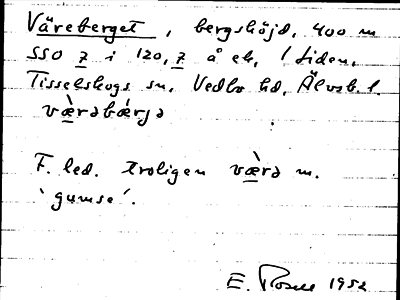 Väreberget, bergshöjd, 400 m
SSO 7 i 120, 7 å ek. / tiden.
Tisselskogs sn, Vedbo hd, Älvsb. l.
væ̀rəbærjə
F. led. troligen væ̀rə m.
'gumse'.
E. 1952